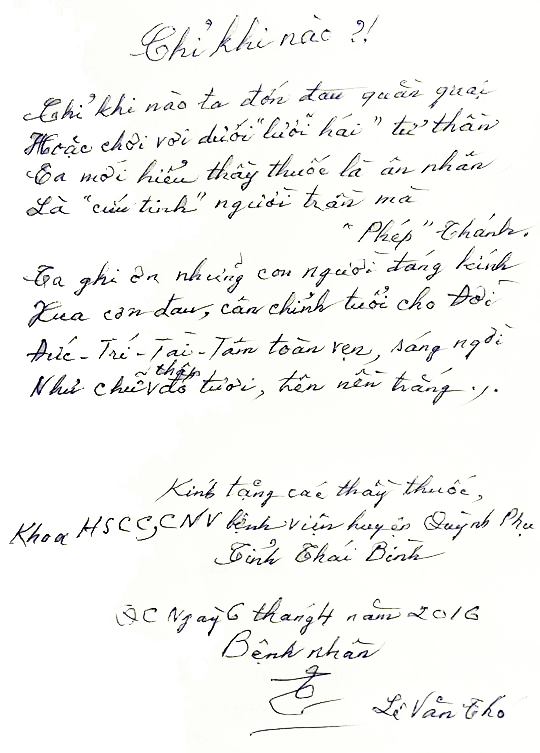 Chỉ khi nào ?!
Chỉ khi nào ta đớn đau quằn quại
Hoặc chới với dưới "lưỡi hái" tử thần
Ta mới hiểu thầy thuốc là ân nhân
Là "cứu tinh" người trần mà
"Phép" Thánh.
Ta ghi ơn những con người đáng kính
Xua cơn đau, cân chỉnh tuổi cho Đời
Đức - Trí - Tài - Tâm toàn vẹn, sáng ngời
Như chữ thập đỏ tươi, trên nền trắng ./.
Kính tặng các thầy thuốc,
Khoa HSCC, CNV bệnh viện huyện Quỳnh Phụ
Tỉnh Thái Bình
QC Ngày 6 tháng 4 năm 2016
Bệnh nhân
Lê Văn Thố